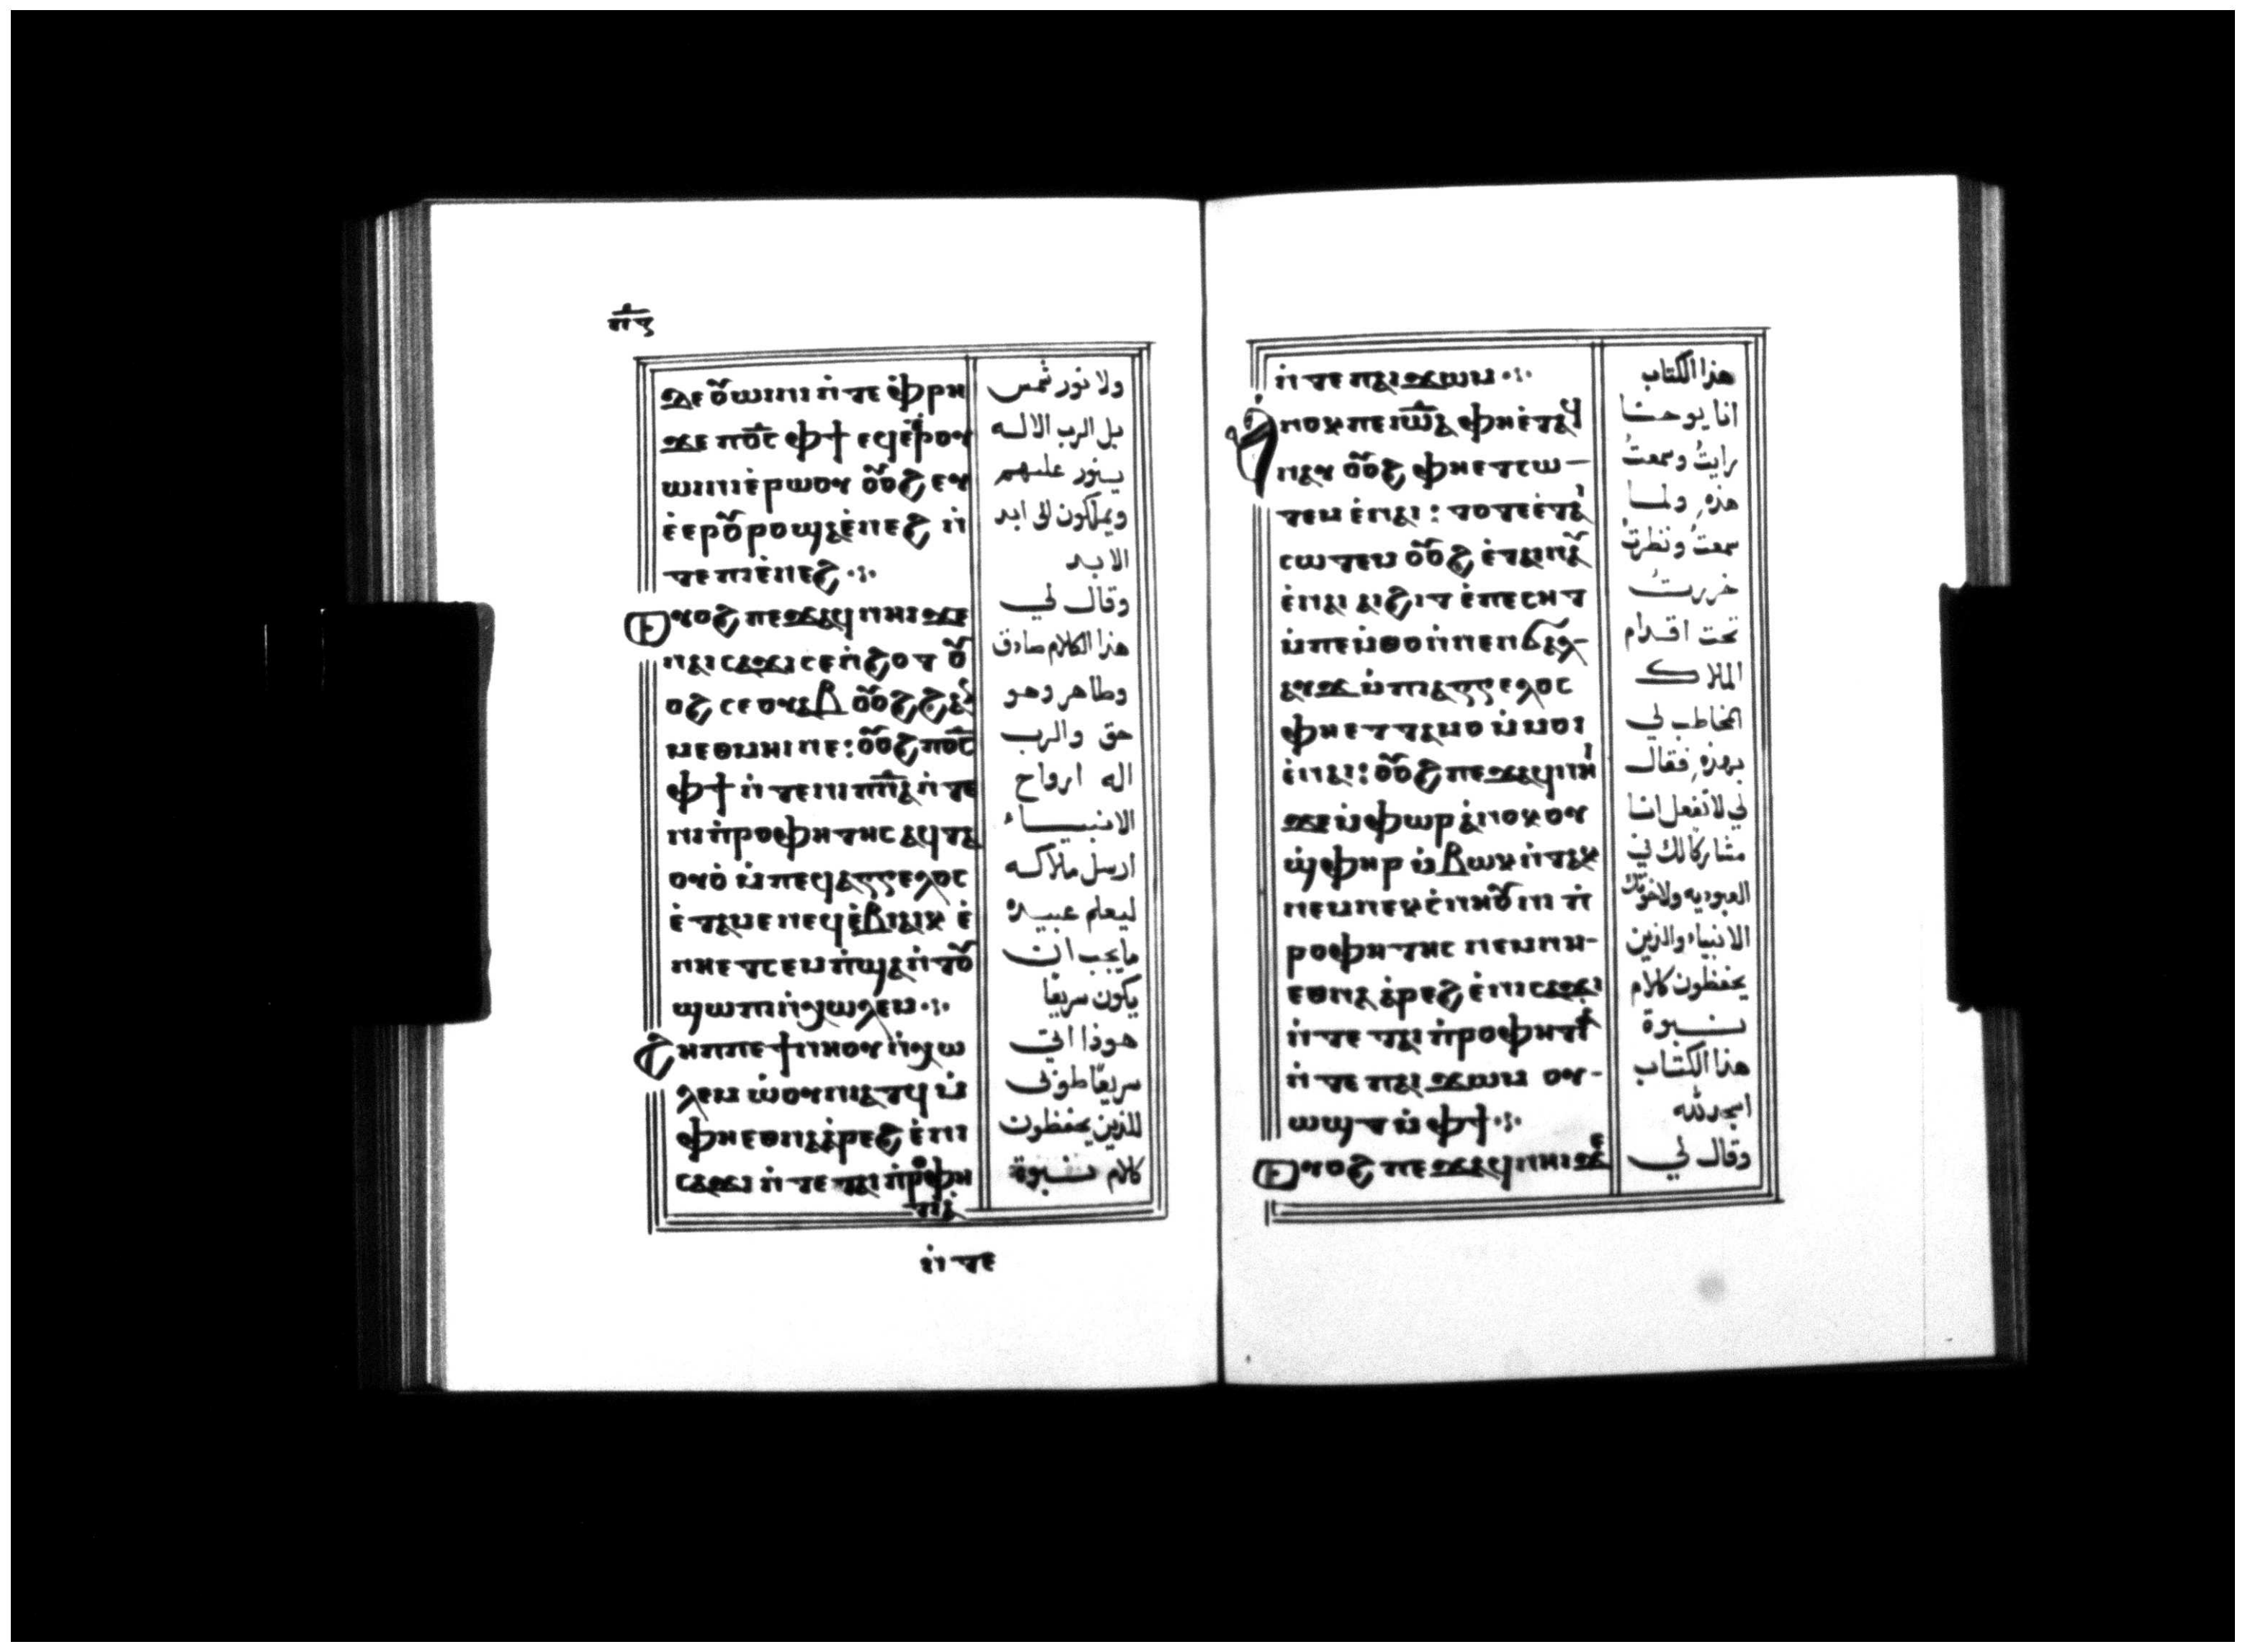 ϫⲉ ⲟⲩⲱⲓⲛⲓ ⲛ̇ⲧⲉ ⲫ̇ⲣⲏ
ϫⲉ ⲡϭⲥ ⲫϯ ⲉϥⲉ̇ⲉⲣⲟⲩ
ⲱⲓⲛⲓ ⲉ̇ⲣⲱⲟⲩ ⲟⲩⲟϩ ⲉⲩ
ⲉ̇ⲉⲣⲟⲩⲣⲟ ϣⲁ ⲉ̇ⲛⲉϩ ⲛ̇
ⲧⲉ ⲡⲓⲉ̇ⲛⲉϩ ·:·
ⲟⲩⲟϩ ⲡⲉϫⲁϥ ⲛⲏⲓ ϫⲉ
ⲛⲁⲓⲥⲁϫⲓ ⲥⲉⲛ̇ϩⲟⲧ ⲟⲩ
ⲟϩ ⲥⲉⲟⲩⲁⲃ ⲟⲩⲟϩ ϩⲁⲛ
ⲙⲉⲑⲙⲏⲓ ⲛⲉ: ⲟⲩⲟϩ ⲡϭⲥ
ⲫϯ ⲛ̇ⲧⲉ ⲛⲓⲡⲛⲁ ⲛ̇ⲧⲉ
ⲛⲓⲡ̇ⲣⲟⲫⲏⲧⲏⲥ ⲁϥⲧⲁ
ⲟⲩⲟ ⲙ̇ⲡⲉϥⲁⲅⲅⲉⲗⲟⲥ
ⲉ̇ⲧⲁⲙⲉ ⲛⲉϥⲉ̇ⲃⲓⲁⲓⲕ ⲉ̇
ⲛⲏⲉⲧⲥⲉⲙⲡ̇ϣⲁ ⲛ̇ⲧⲟⲩ
ϣⲱⲡⲓ ⲛ̇ⲭⲱⲗⲉⲙ ·:·
ϩⲏⲡⲡⲉ ϯⲛⲏⲟⲩ ⲛ̇ⲭⲱ
ⲗⲉⲙ ⲱ̇ⲟⲩⲛⲓⲁⲧϥ ⲙ̇
ⲫⲏⲉⲑⲛⲁⲁ̇ⲣⲉϩ ⲉ̇ⲛⲓ
ⲥⲁϫⲓ ⲛ̇ⲧⲉ ⲧⲁⲓⲡ̇ⲣⲟⲫⲏ
ⲧⲓⲁ
ⲛ̇ⲧⲉ
ولا نور شمس
بل الرب الاله
ينور عليهم
ويملكون الى ابد
الابد
وقال لي
هذا الكلام صادق
وطاهر وهو
حق والرب
اله ارواح
الانبياء
ارسل ملاكه
ليعلم عبيده
ما يجب ان
يكون سريعا
هوذا اتى
سريعا طوبى
للذين يحفظون
كلام نبوة
ⲛ̇ⲧⲉ ⲡⲁⲓϫⲱⲙ ·:·
ⲁⲛⲟⲕ ⲡⲉ ⲓⲱⲁ ⲫⲏⲉ̇ⲧⲁϥ
ⲛⲁⲩ ⲟⲩⲟϩ ⲫⲏⲉⲧⲥⲱ-
ⲧⲉⲙ ⲉ̇ⲛⲁⲓ: ⲧⲟⲧⲉ ⲉ̇ⲧⲁⲓ
ⲥⲱⲧⲉⲙ ⲟⲩⲟϩ ⲉ̇ⲧⲁⲓⲛⲁⲩ
ⲉ̇ⲛⲁⲓ ⲁⲓϩⲓⲧ ⲉ̇ⲡⲉⲥⲏⲧ
ⲙ̇ⲡⲉⲙ̇ⲑⲟ ⲛ̇ⲛⲉⲛϭⲁⲗ-
ⲁⲩϫ ⲙ̇ⲡⲓⲁⲅⲅⲉⲗⲟⲥ
ⲫⲏⲉⲧⲧⲁⲙⲟ ⲙ̇ⲙⲟⲓ
ⲉ̇ⲛⲁⲓ: ⲟⲩⲟϩ ⲡⲉϫⲁϥ ⲛⲏⲓ
ϫⲉ ⲙ̇ⲫⲱⲣ ⲁ̇ⲛⲟⲕ ⲟⲩ
ϣ̇ⲫⲏⲣ ⲙ̇ⲃⲱⲕ ⲛ̇ⲧⲁⲕ
ⲛⲉⲙ ⲛⲉⲕⲥ̇ⲛⲏⲟⲩ ⲛⲓⲡ̇
ⲣⲟⲫⲏⲧⲏⲥ ⲛⲉⲙ ⲛⲏ-
ⲉⲑⲛⲁⲁ̇ⲣⲉϩ ⲉ̇ⲛⲓⲥⲁϫⲓ
ⲛ̇ⲧⲉ ⲧⲁⲓⲡ̇ⲣⲟⲫⲏⲧⲓⲁ
ⲛ̇ⲧⲉ ⲡⲁⲓϫⲱⲙ ⲟⲩ-
ⲱϣⲧ ⲙ̇ⲫϯ ·:·
ⲟⲩⲟϩ ⲡⲉϫⲁϥ ⲛⲏⲓ ϫⲉ
هذا الكتاب
انا يوحنا
رايت وسمعت
هذه ولما
سمعت ونظرت
خررت
تحت اقدام
الملاك
المخاطب لي
بهذه فقال
لي لا تفعل انا
مشاركا لك في
العبوديه ولاخوتك
الانبياء والذين
يحفظون كلام
نبوة
هذا الكتاب
اسجد لله
وقال لي